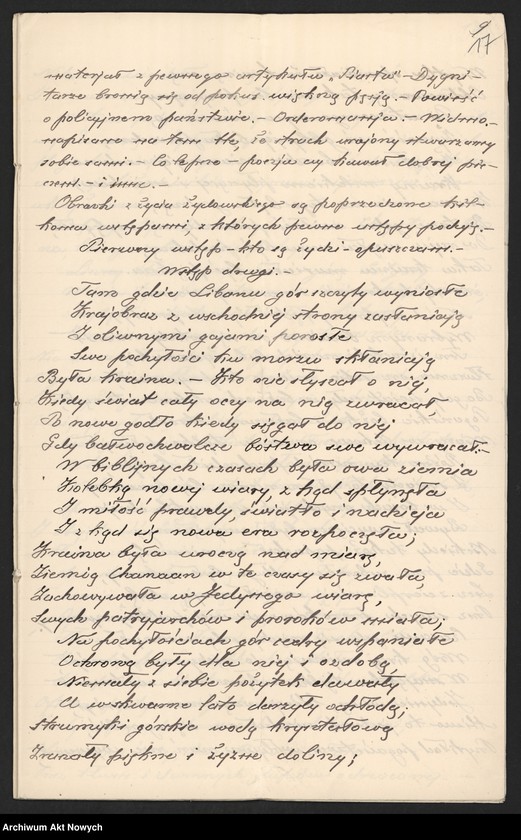 9
17
materjał z pewnego artykułu „Piasta” - Dygni-
tarze bronią się od pokus większą pensją. - Powieść
o policyjnem państwie. - Orderomanja. - Widmo. -
napisane na tem tle, że strach urojony stwarzamy
sobie sami. - Co lepsze - poezja czy kawał dobrej pie-
czeni. - i inne. -
Obrazki z życia żydowskiego są poprzedzone kil-
koma wstępami, z których pewne ustępy podaję. -
Pierwszy wstęp - kto są żydzi - opuszczam. -
Wstęp drugi. -
Tam gdzie Libanu gór szczyty wyniosłe
Krajobraz z wschodniej strony zasłaniają
I oliwnymi gajami porosłe
Swe pochyłości ku morzu skłaniają
Była kraina. - Kto nie słyszał o niej,
Kiedy świat cały oczy na nią zwracał,
Po nowe godło kiedy sięgał do niej
Gdy bałwochwalcze bóstwa swe wywracał. -
W biblijnych czasach była owa ziemia
Kolebką nowej wiary, z kąd spłynęła
I miłość prawdy, światło i nadzieja
I z kąd się nowa era rozpoczęła;
Kraina była uroczą nad miarę,
Ziemią Chanaan w te czasy się zwała,
Zachowywała w Jedynego wiarę,
Swych patryjarchów i proroków miała;
Na pochyłościach gór cedry wspaniałe
Ochroną były dla niej i ozdobą,
Niemały z siebie pożytek dawały
A w skwarne lato darzyły ochłodą;
Strumyki górskie wodą kryształową
Zraszały piękne i żyzne doliny;
Archiwum Akt Nowych